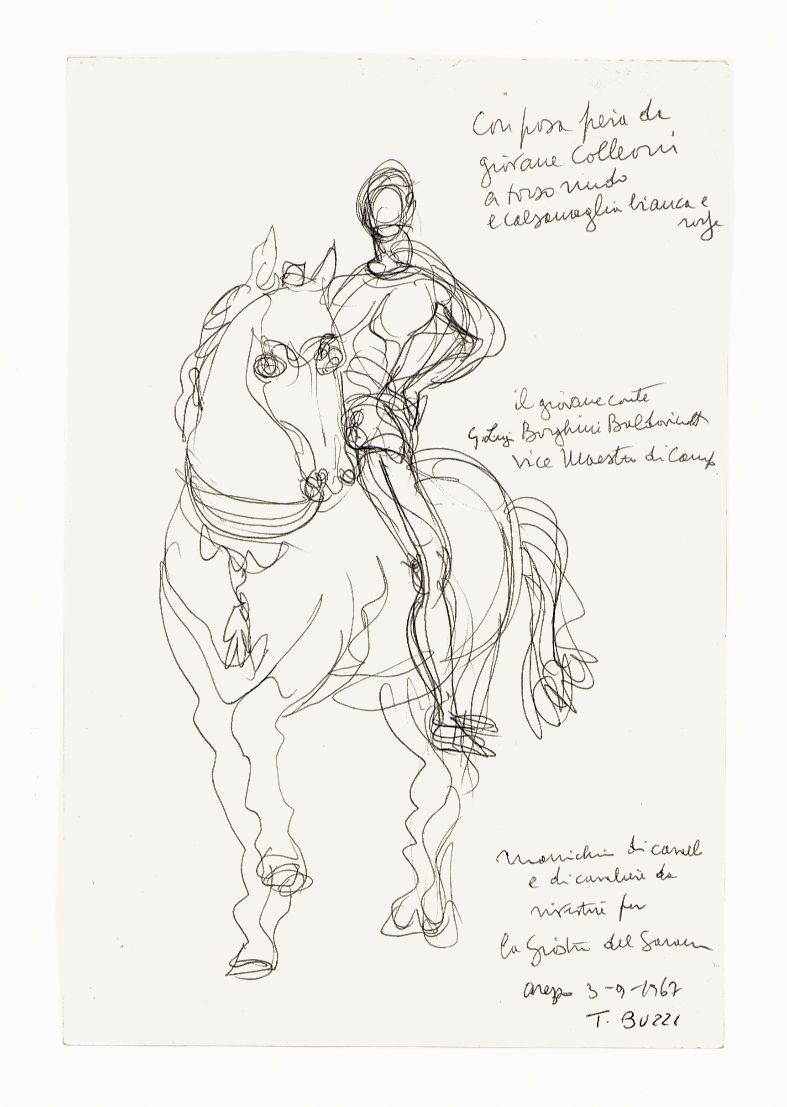 Con posa fiera da
giovane Colleoni
a torso nudo
e calzamaglia bianca e
il giovane conte
Borghini Baldovinetti
vice Maestro di Campo
di cavallo
e di cavaliere da
rivestire per
la Giostra del Saracen
Arezzo 3-9-1967
T. BUZZI